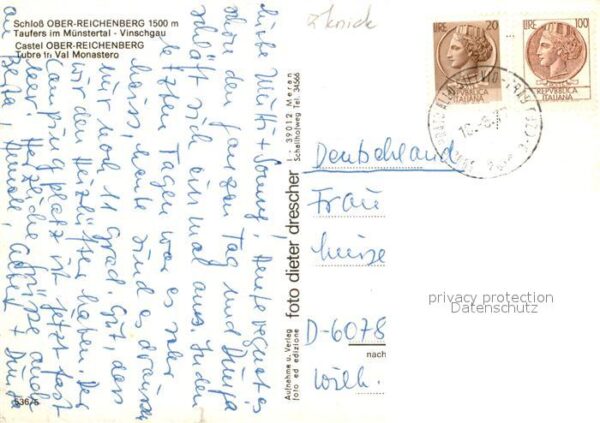 Schloß OBER-REICHENBERG 1500 m
Taufers im Münstertal - Vinschgau
Castel OBER-REICHENBERG
Tubre in Val Monastero
Z knick
LIRE 20
REPVBBLICA
ITALIANA
LIRE 100
REPVBBLICA
ITALIANA
Liebe Mutti + Sonny! Heute regnet es
schon den ganzen Tag und Dunja
schläft sich einmal aus. In den
letzten Tagen war es sehr
heiss, heute sind es draussen
nur noch 11 grad. Gut, dass
wir den Heizlüfter haben. Der
Campingplatz ist jetzt fast
leer. Herzliche Grüsse auch
an + Dunja
Aufnahme u. Verlag
foto ed edizione
foto dieter drescher
I - 39012 Meran
Schallhofweg Tel. 34566
Deutschland
Frau
Luise
D-6078
nach
privacy protection
Datenschutz
536/5